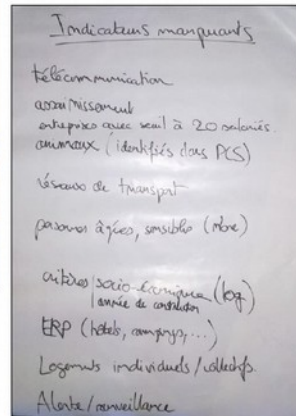 Indicateurs manquants
télécommunication
assainissement
entreprises avec seuil à 20 salariés.
animaux (identifiés dans PCS)
réseaux de transport
personnes âgées, sensibles (nbre)
critères socio-économiques (log)
/ année de construction
ERP (hôtels, campings, ...)
Logements individuels/collectifs.
Alerte/surveillance